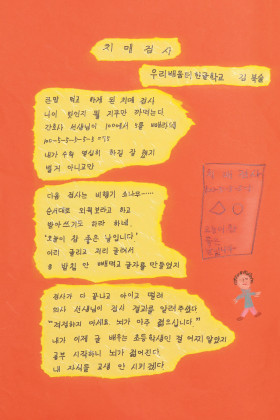 치매 검사
우리배움터한글학교 김복술
큰맘 먹고 하게 된 치매 검사
나이 탓인지 뭘 자꾸만 까먹는다
간호사 선생님이 100에서 5를 빼래요
100-5-5-5-5
내가 수학 열심히 하길 잘 했지
별거 아니고만
다음 검사는 비행기 소나무……
순서대로 외워보라고 하고
받아쓰기도 하라 하네,
"오늘이 참 좋은 날입니다"
머리 굴리고 굴려서
받침 안 빼먹고 글자를 만들었지
검사가 다 끝나고
의사 선생님이 검사 결과를 알려주셨다
"걱정하지 마세요. 뇌가 아주 젊으십니다."
내가 이제 글 배우는 초등학생인 걸 어찌 알았지
공부 시작하니 뇌가 젊어진다
내 자식들 고생 안 시키겠다